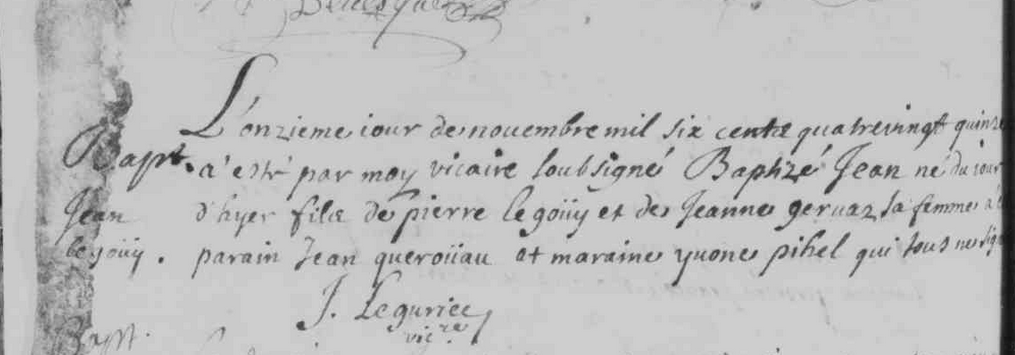 L'onzieme iour de novembre mil six cents quatrevingt quinze
Bapt. a esté par moy vicaire soubsigné Baptizé Jean né du iour
Jean d'hyer fils de pierre legoüy et de Jeanne gervaz sa femme a
legoüy. parain Jean querouau et maraine yvone pihel qui tous ne
J. Leguriec
vic.re
Bapt.